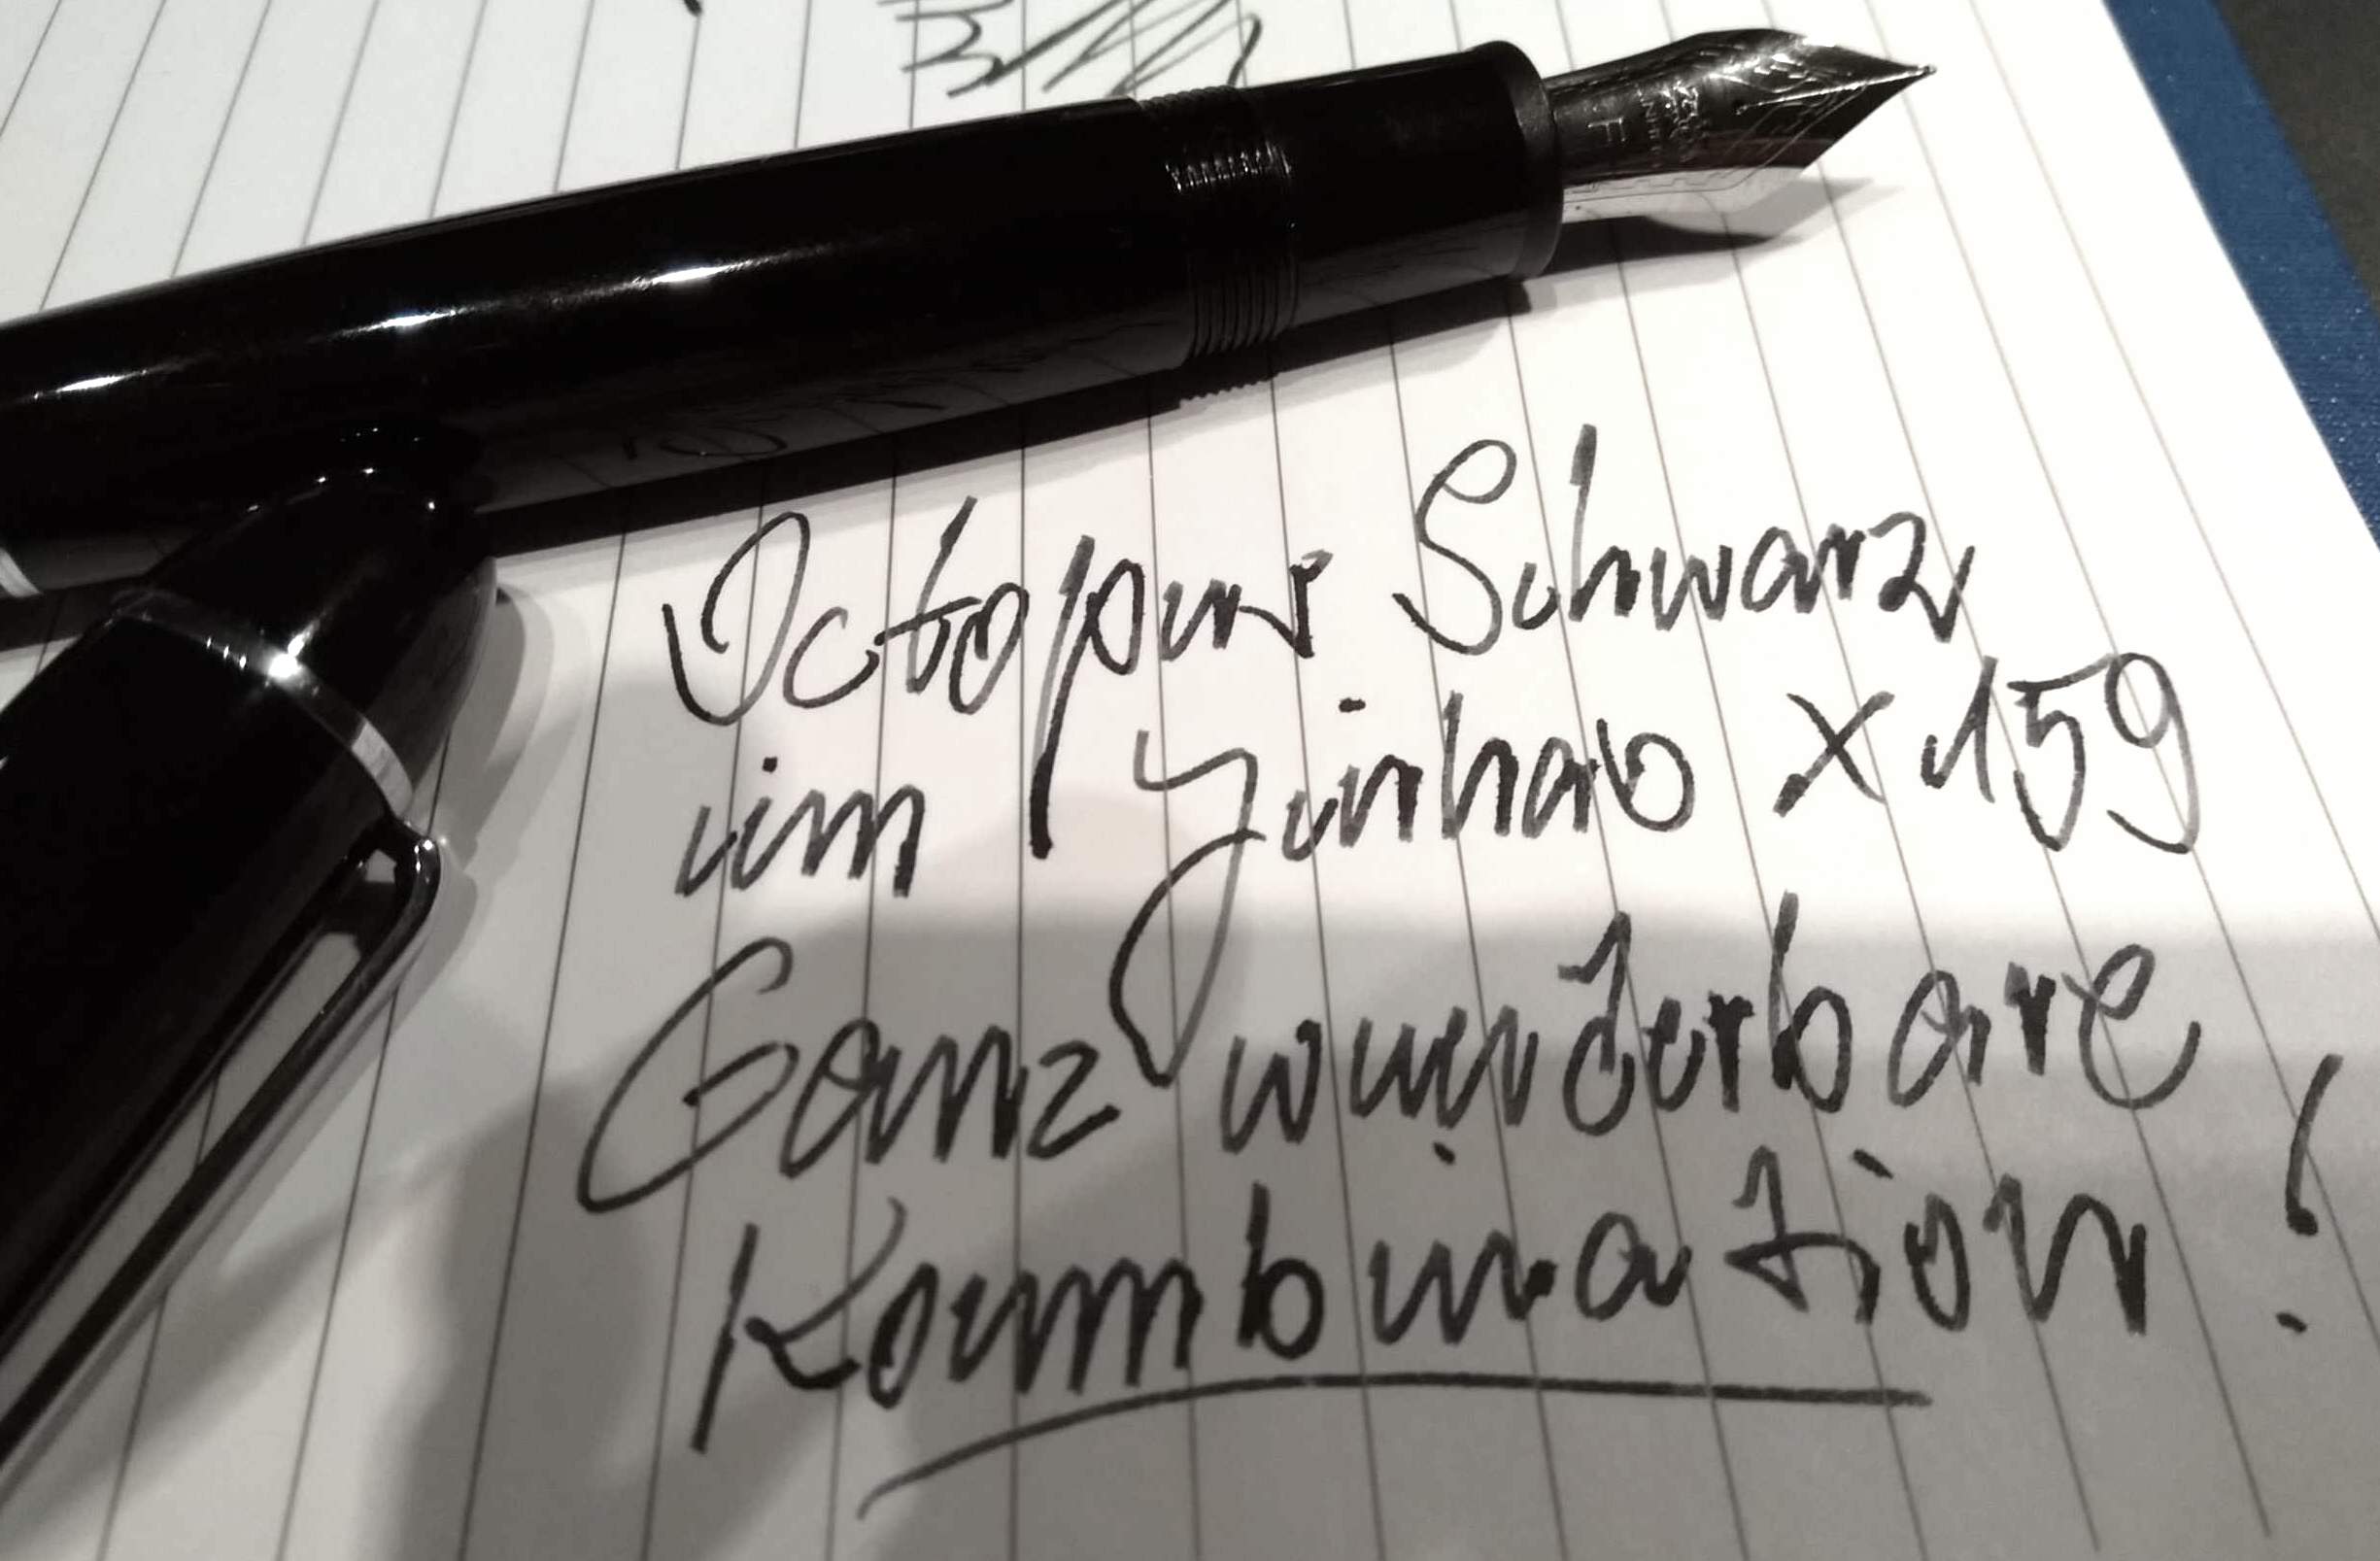 Octopus Schwarz
im Jinhao X159
Ganz wunderbare
Kombination!
F